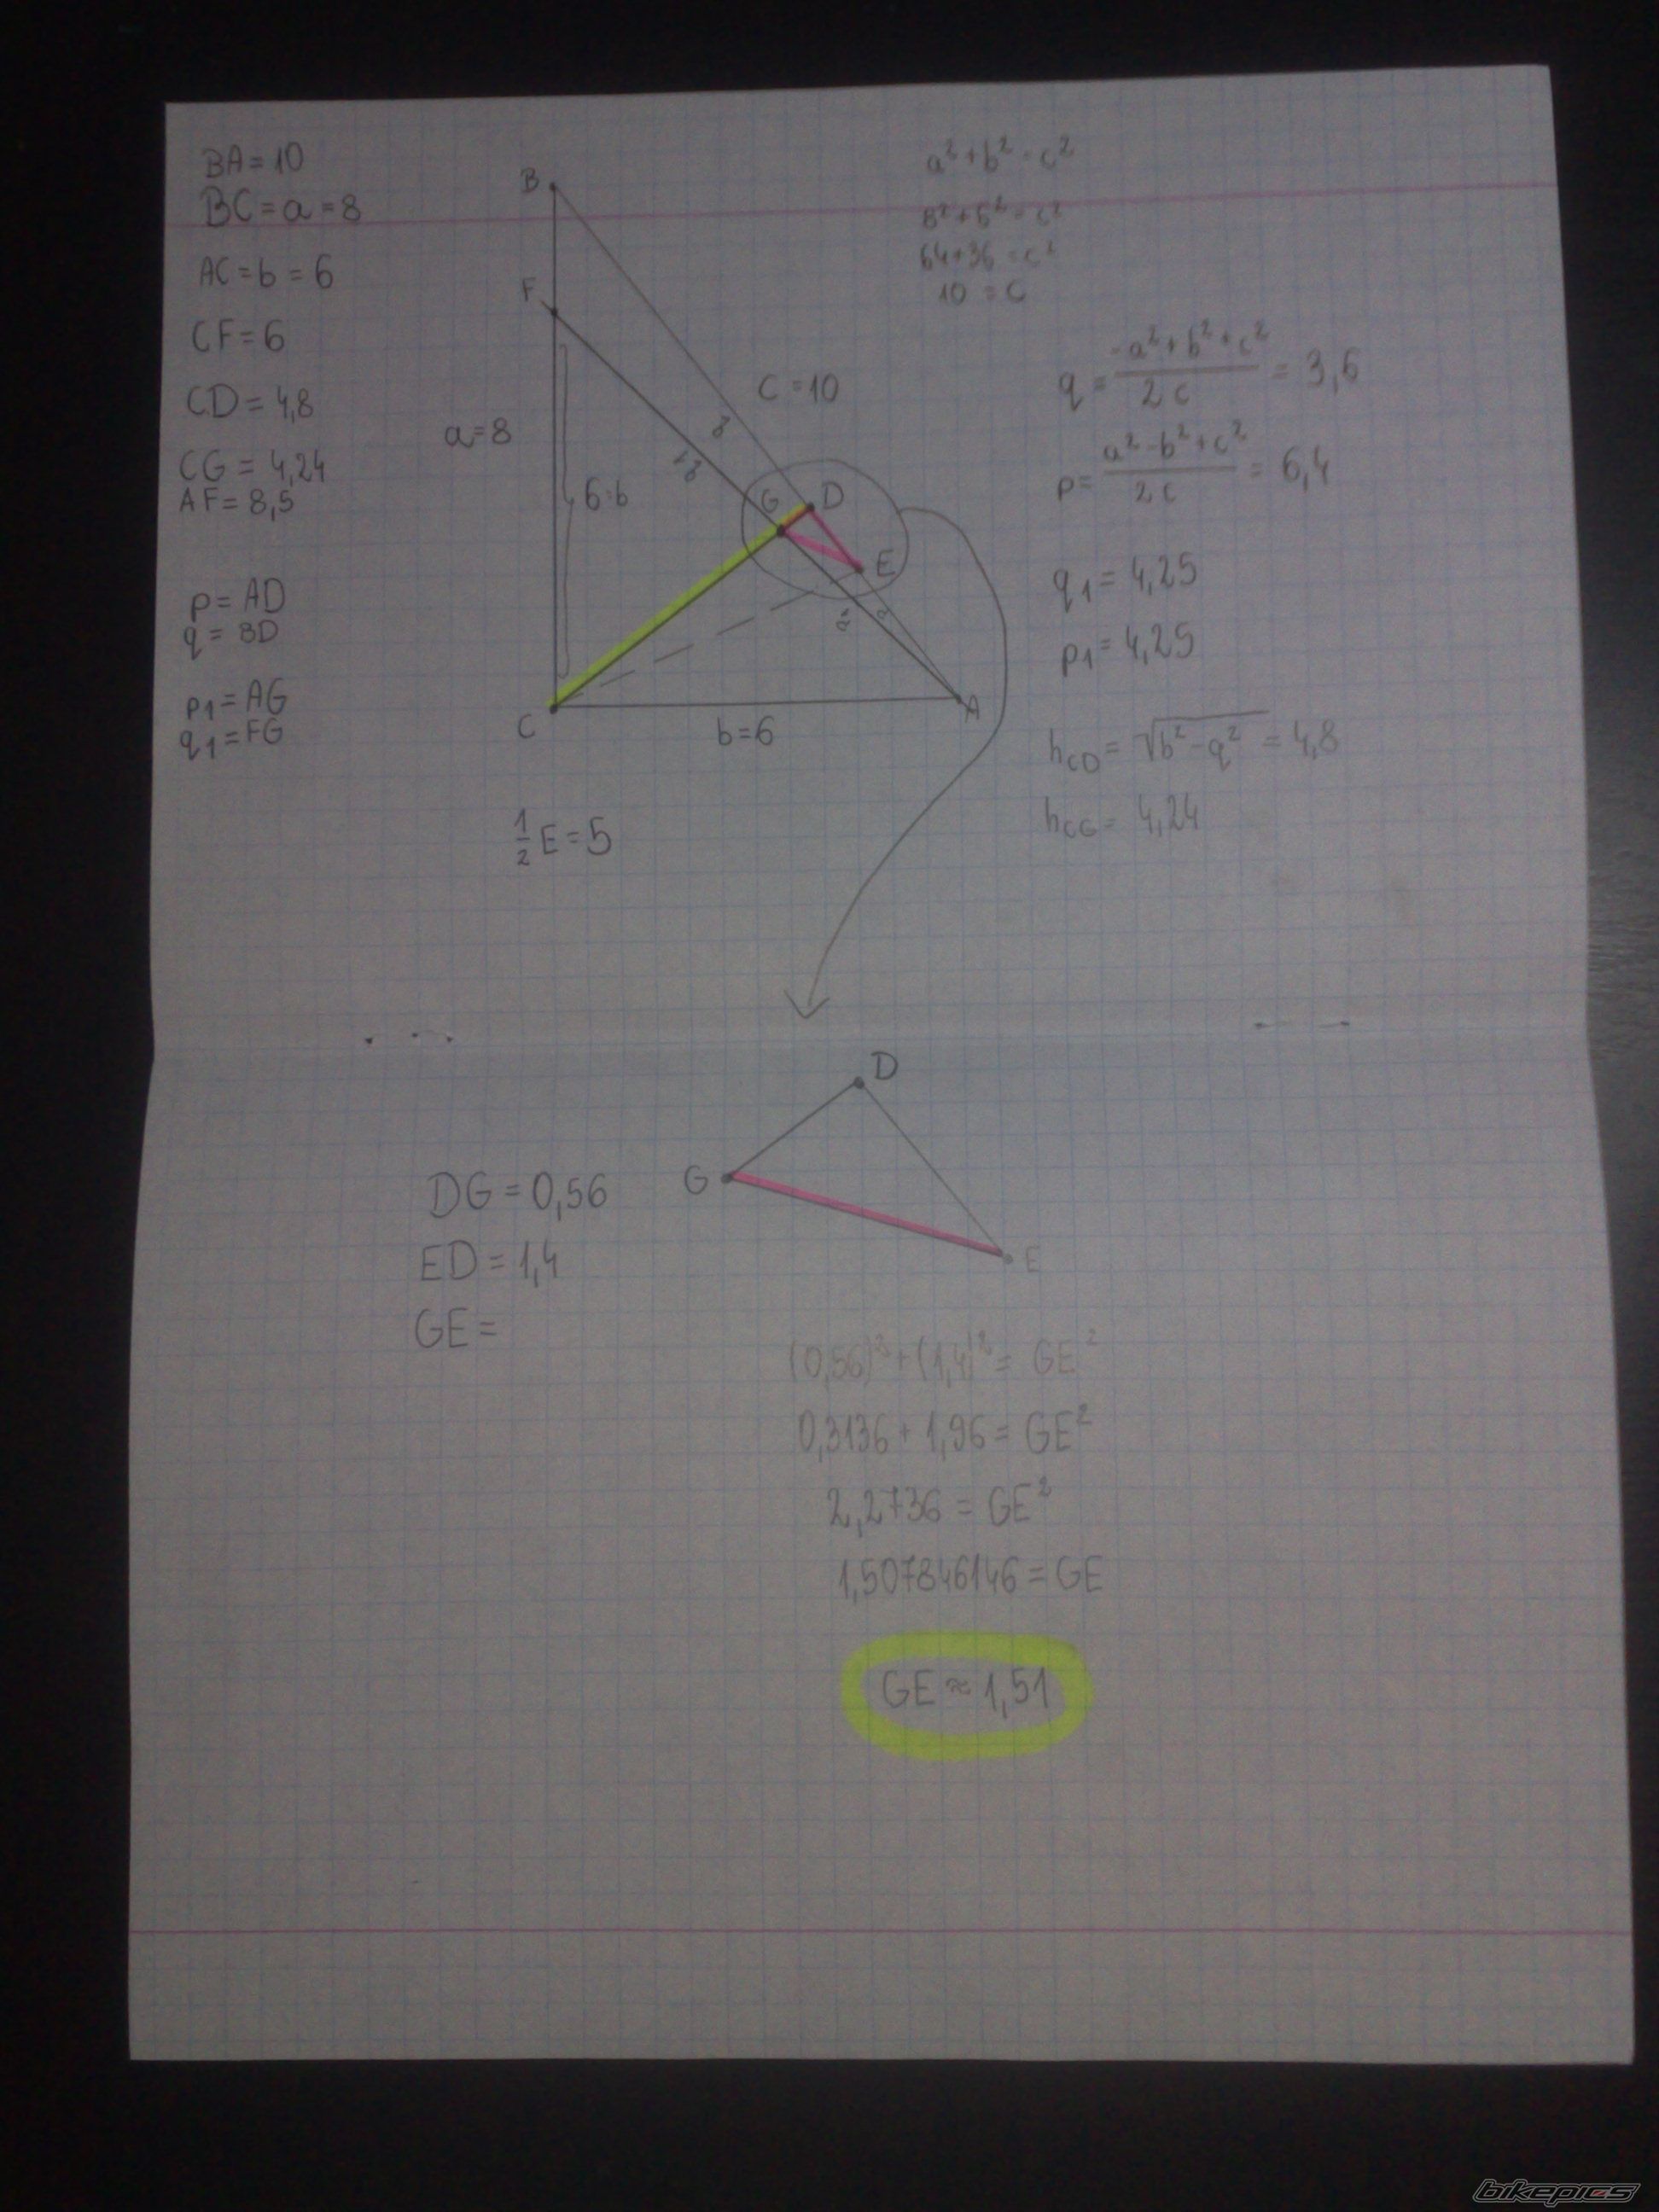 BA = 10
BC = a = 8
AC = b = 6
CF = 6
CD = 4,8
CG = 4,24
AF = 8,5
p = AD
q = BD
p1 = AG
q1 = FG
B
F
a=8
6=b
C = 10
G
D
E
C
b=6
A
1/2 E = 5
a² + b² = c²
8² + 6² = c²
64+36 = c²
10 = c
q = (-a² + b² + c²) / 2c = 3,6
p = (a² - b² + c²) / 2c = 6,4
q1 = 4,25
p1 = 4,25
hCD = √(b² - q²) = 4,8
hCG = 4,24
D
G
E
DG = 0,56
ED = 1,4
GE =
(0,56)² + (1,4)² = GE²
0,3136 + 1,96 = GE²
2,2736 = GE²
1,507846146 = GE
GE ≈ 1,51
bikepics